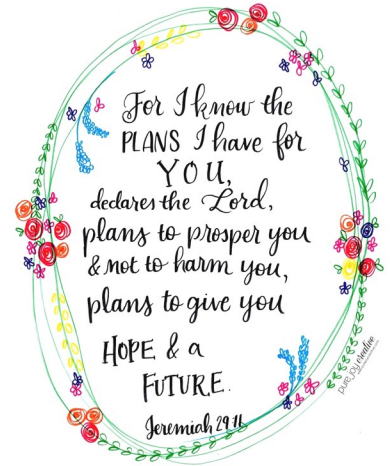 For I know the
PLANS I have for
YOU,
declares the Lord,
plans to prosper you
& not to harm you,
plans to give you
HOPE & a
FUTURE.
Jeremiah 29:11
pure joy creative